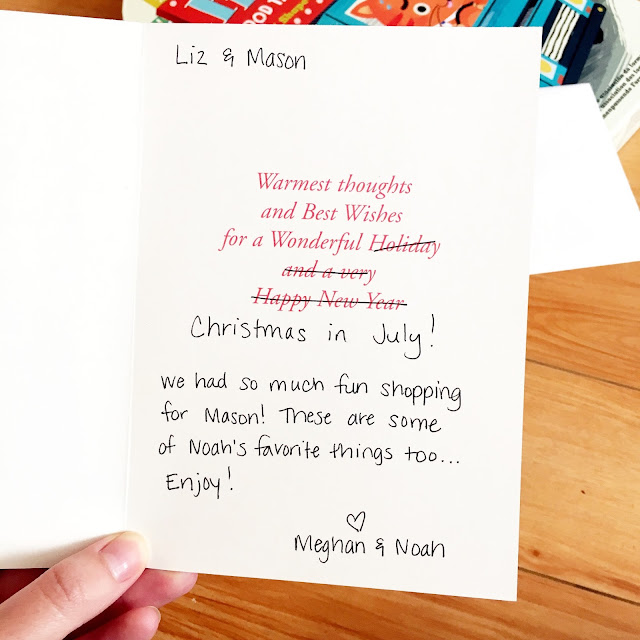 Liz & Mason
Warmest thoughts
and Best Wishes
for a Wonderful Holiday
and a very
Happy New Year
Christmas in July!
we had so much fun shopping
for Mason! These are some
of Noah's favorite things too...
Enjoy!
♡
Meghan & Noah